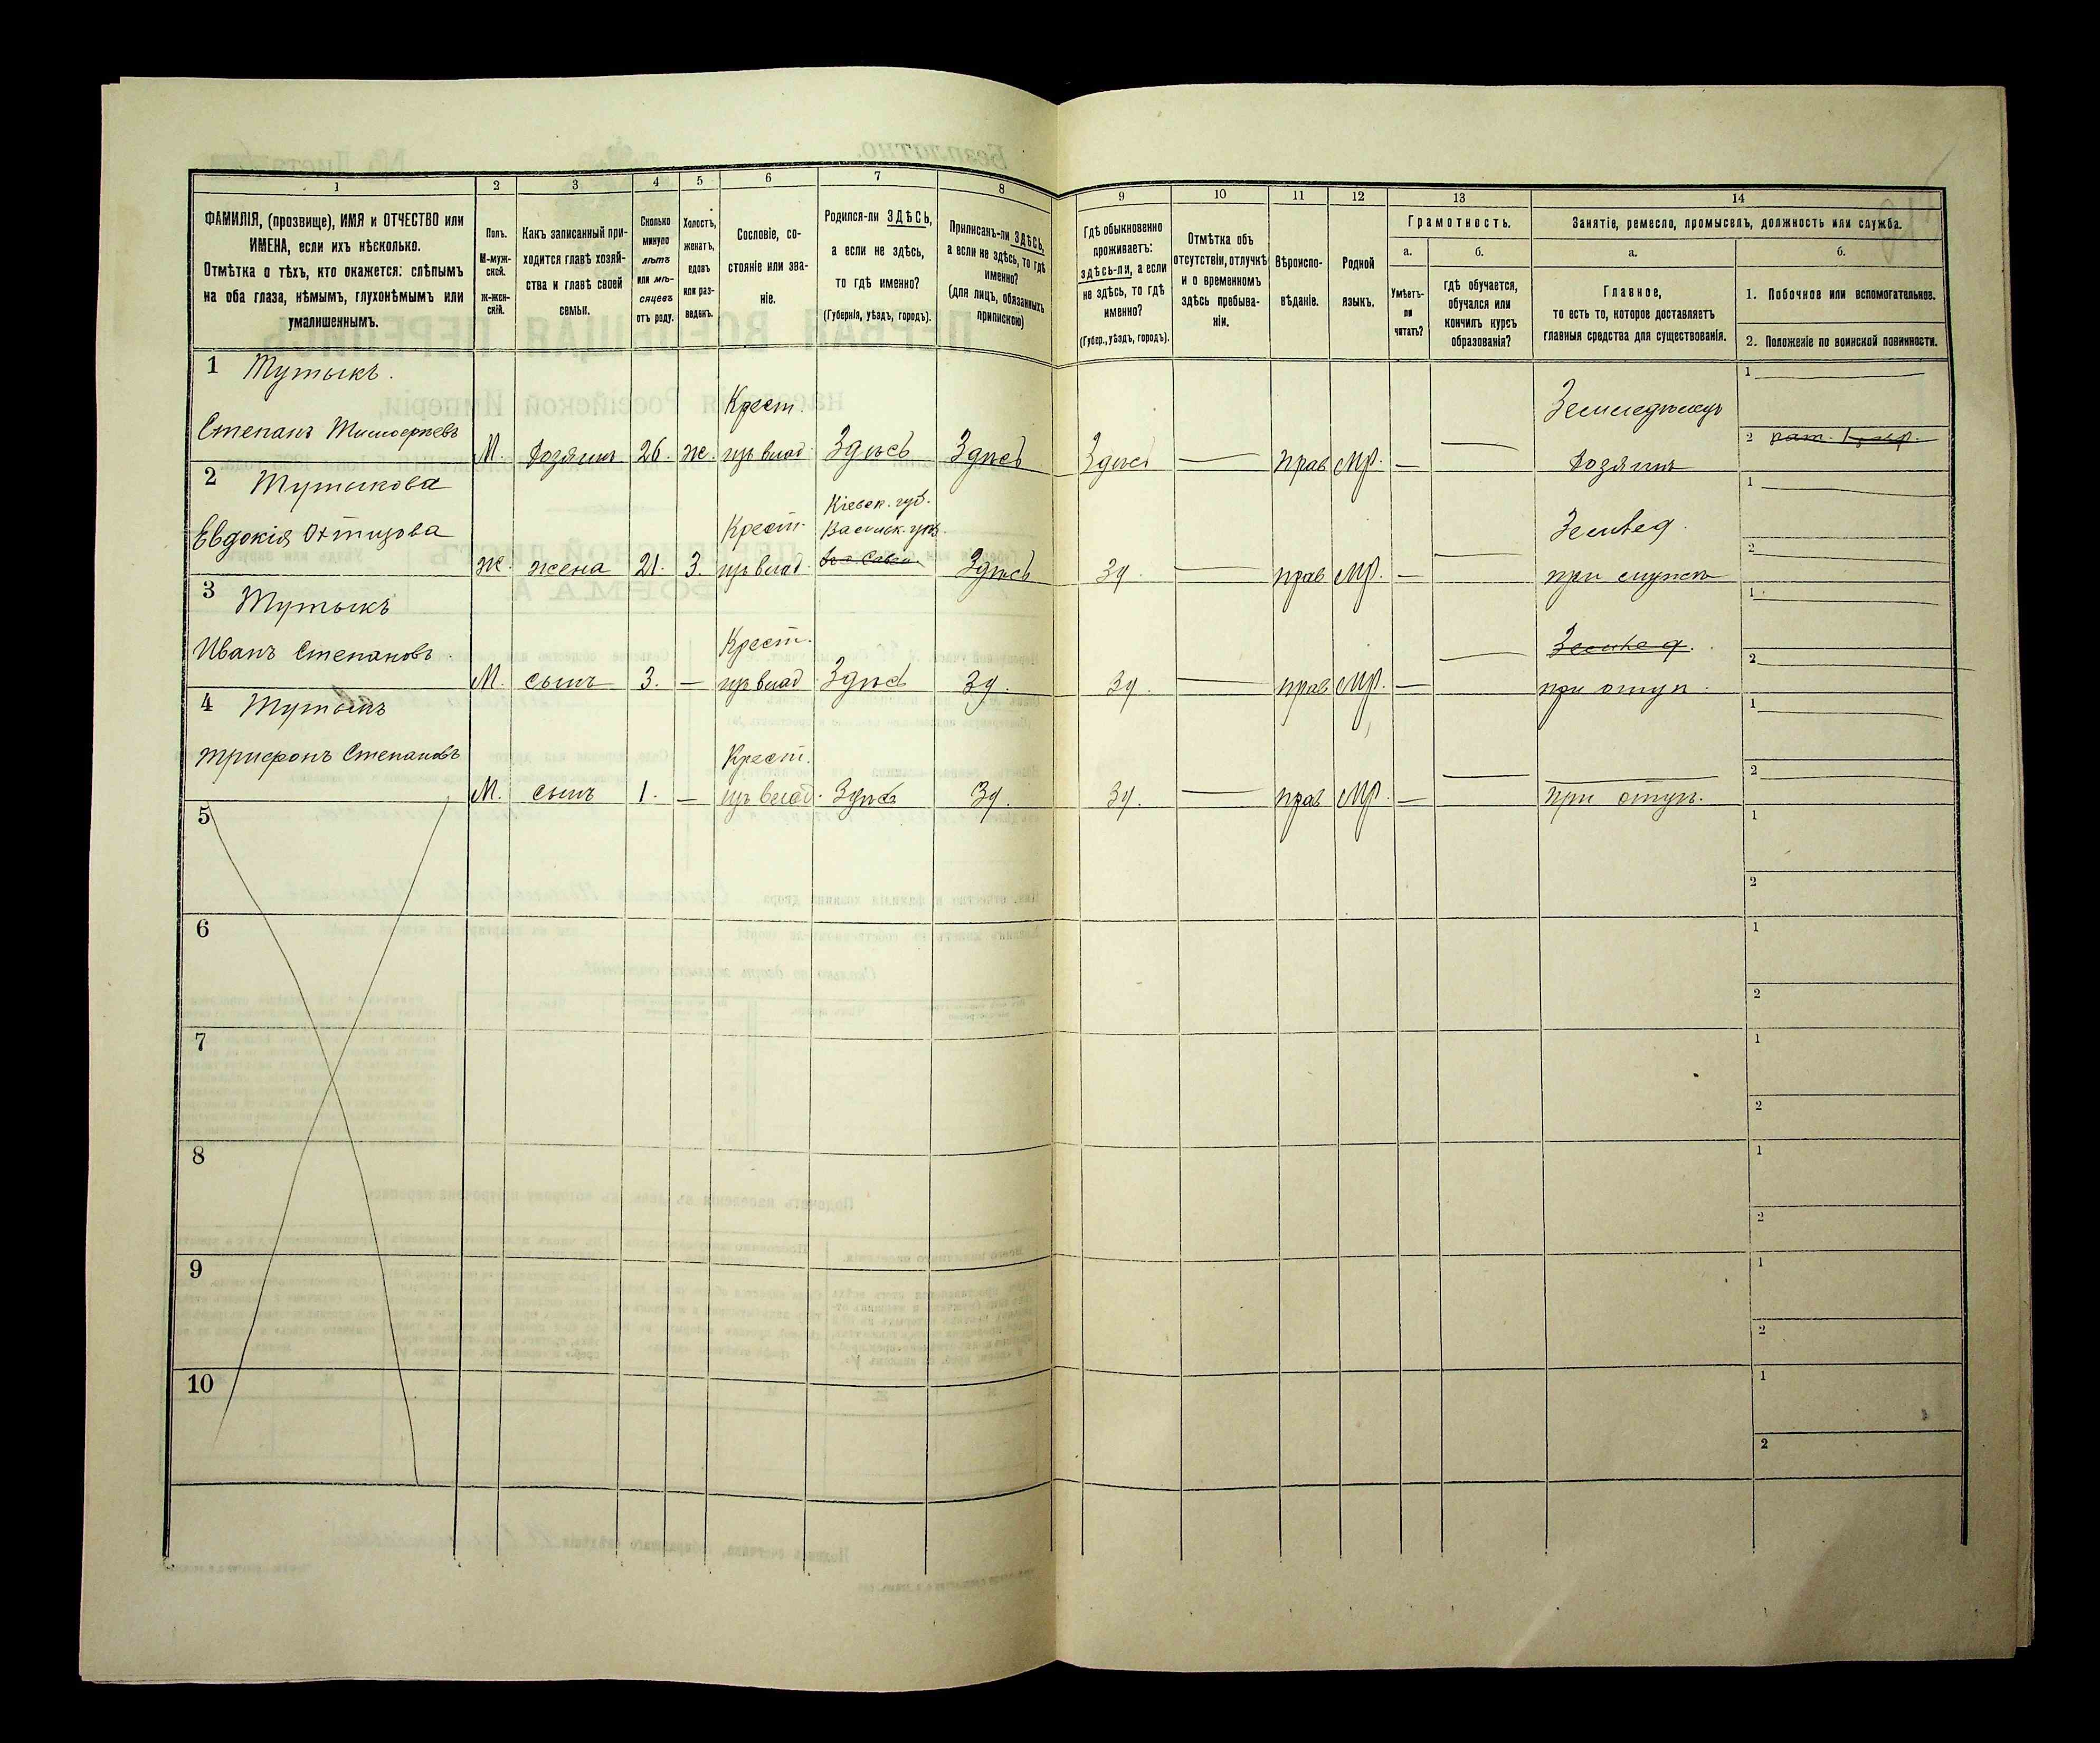 1
2
3
4
5
6
7
8
ФАМИЛІЯ, (прозвище), ИМЯ и ОТЧЕСТВО или
ИМЕНА, если ихъ нѣсколько.
Отмѣтка о тѣхъ, кто окажется: слѣпымъ
на оба глаза, нѣмымъ, глухонѣмымъ или
умалишеннымъ.
Полъ.
М-муж-
ской.
ж-жен-
скій.
Какъ записанный при-
ходится главѣ хозяй-
ства и главѣ своей
семьи.
Сколько
минуло
лѣтъ
или мѣ-
сяцевъ
отъ роду.
Холостъ,
женатъ,
вдовъ
или раз-
веденъ.
Сословіе, со-
стояніе или зва-
ніе.
Родился-ли ЗДѢСЬ,
а если не здѣсь,
то гдѣ именно?
(Губернія, уѣздъ, городъ).
Приписанъ-ли ЗДѢСЬ,
а если не здѣсь, то гдѣ
именно?
(для лицъ, обязанныхъ
припискою)
9
10
11
12
13
14
Гдѣ обыкновенно
проживаетъ:
здѣсь-ли, а если
не здѣсь, то гдѣ
именно?
(Губер., уѣздъ, городъ).
Отмѣтка объ
отсутствіи, отлучкѣ
и о временномъ
здѣсь пребыва-
ніи.
Вѣроиспо-
вѣданіе.
Родной
языкъ.
Грамотность.
а.
Умѣетъ-
ли
читать?
б.
гдѣ обучается,
обучался или
кончилъ курсъ
образованія?
Занятіе, ремесло, промыселъ, должность или служба.
а.
Главное,
то есть то, которое доставляетъ
главныя средства для существованія.
б.
1. Побочное или вспомогательное.
2. Положеніе по воинской повинности.
1 Тутыкъ.
Крест.
Земледѣлецъ
1
Степанъ Тимоѳеевъ М. Хозяинъ 26. ж. изъ влад. Здѣсь Здѣсь Здѣсь — прав мр. — — Хозяинъ
2
2 Тутыкова
Кіевск. губ.
1
Евдокія Крест. Васильк. уѣз. Землед.
2
ж. жена 21. з. изъ влад. Здѣсь зд. — прав мр. — — при мужѣ
3 Тутыкъ
1
Иванъ Степановъ Крест. Землед.
2
М. сынъ 3. — изъ влад Здѣсь зд. — прав мр. — — при отцѣ
4 Тутыкъ
1
Трифонъ Степановъ Крест.
2
М. сынъ 1. — изъ влад. Здѣсь зд. зд. — прав мр. — — при отцѣ.
5
1
2
6
1
2
7
1
2
8
1
2
9
1
2
10
1
2